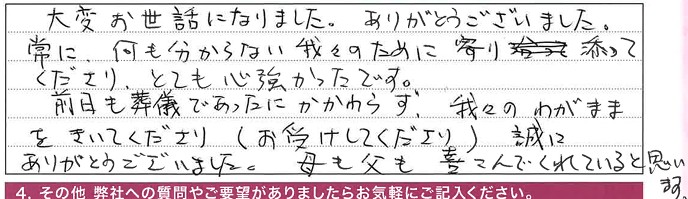 大変お世話になりました。ありがとうございました。
常に、何も分からない我々のために寄り添って
くださり、とても心強かったです。
前日も葬儀であったにかかわらず、我々のわがまま
をきいてくださり(お受けしてくださり)誠に
ありがとうございました。母も父も喜こんでくれていると思い
ます。
4. その他 弊社への質問やご要望がありましたらお気軽にご記入ください。